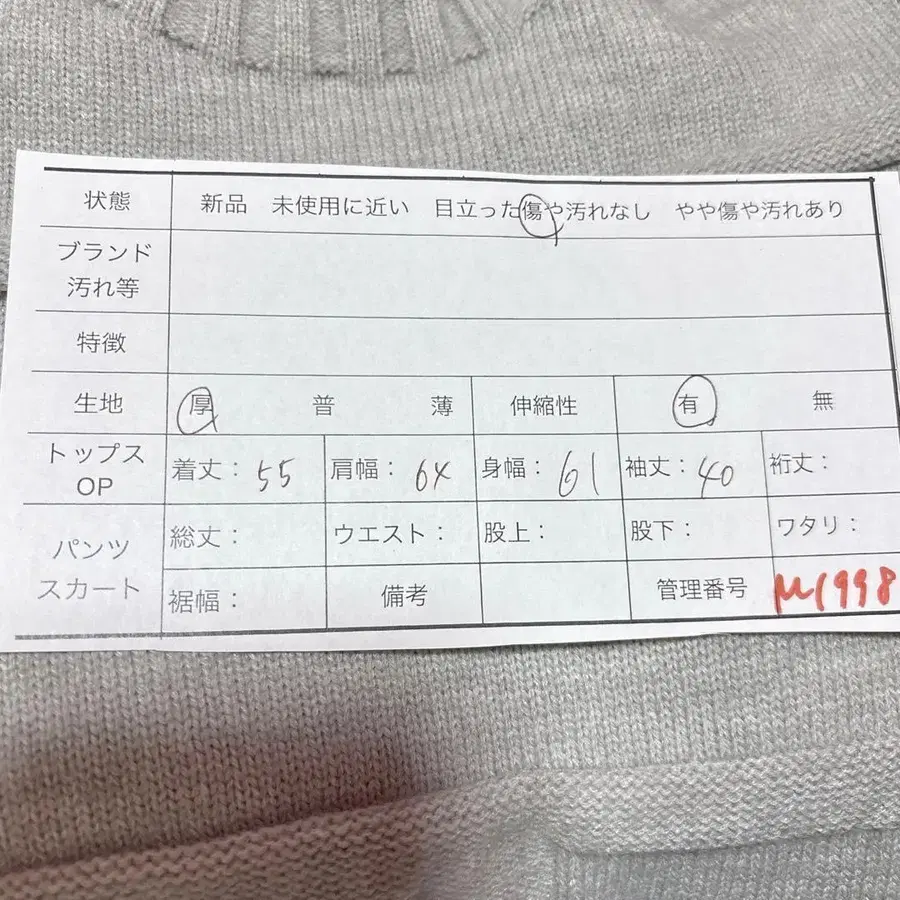 状態 新品 未使用に近い 目立った傷や汚れなし やや傷や汚れあり
ブランド
汚れ等
特徴
生地 厚 普 薄 伸縮性 有 無
トップス
OP
着丈: 55 肩幅: 64 身幅: 61 袖丈: 40 裄丈:
パンツ
スカート
総丈: ウエスト: 股上: 股下: ワタリ:
裾幅: 備考 管理番号 M1998